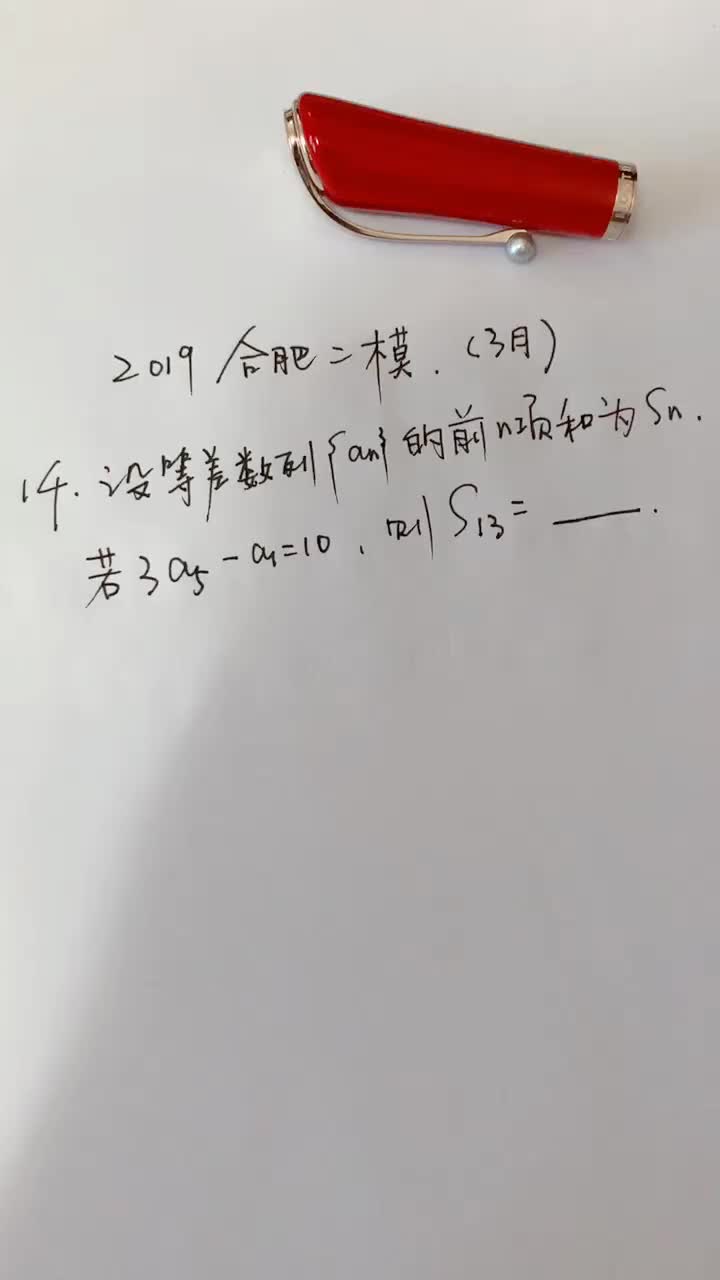 2019 合肥二模.(3月)
14.设等差数列{an}的前n项和为Sn.
若3a5-a1=10,则S13=____.